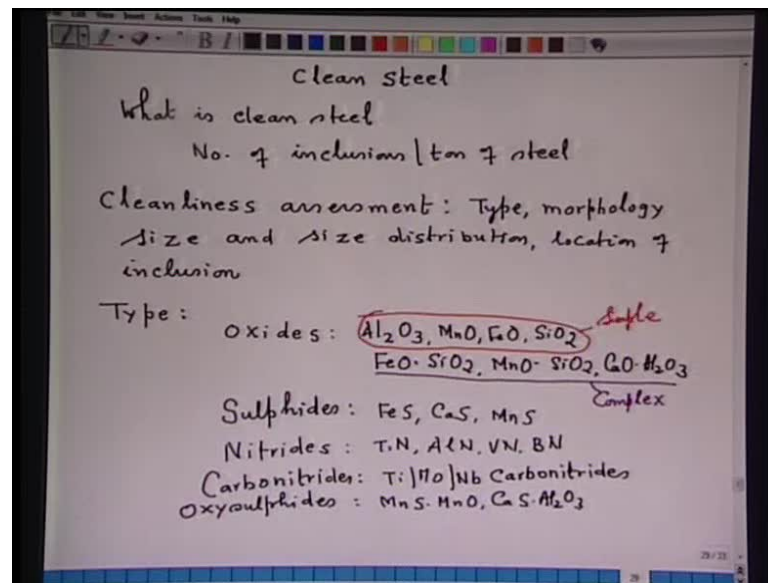 Edit View Insert Actions Tools Help
B I
Clean Steel
What is clean steel
No. of inclusions | ton of steel
Cleanliness assessment : Type, morphology
size and size distribution, location of
inclusion
Type :
Oxides : Al2O3, MnO, FeO, SiO2 Simple
FeO. SiO2, MnO. SiO2, CaO. Al2O3
Complex
Sulphides : FeS, CaS, MnS
Nitrides : TiN, AlN, VN, BN
Carbonitrides : Ti|Mo|Nb Carbonitrides
Oxysulphides : MnS. MnO, CaS. Al2O3
29